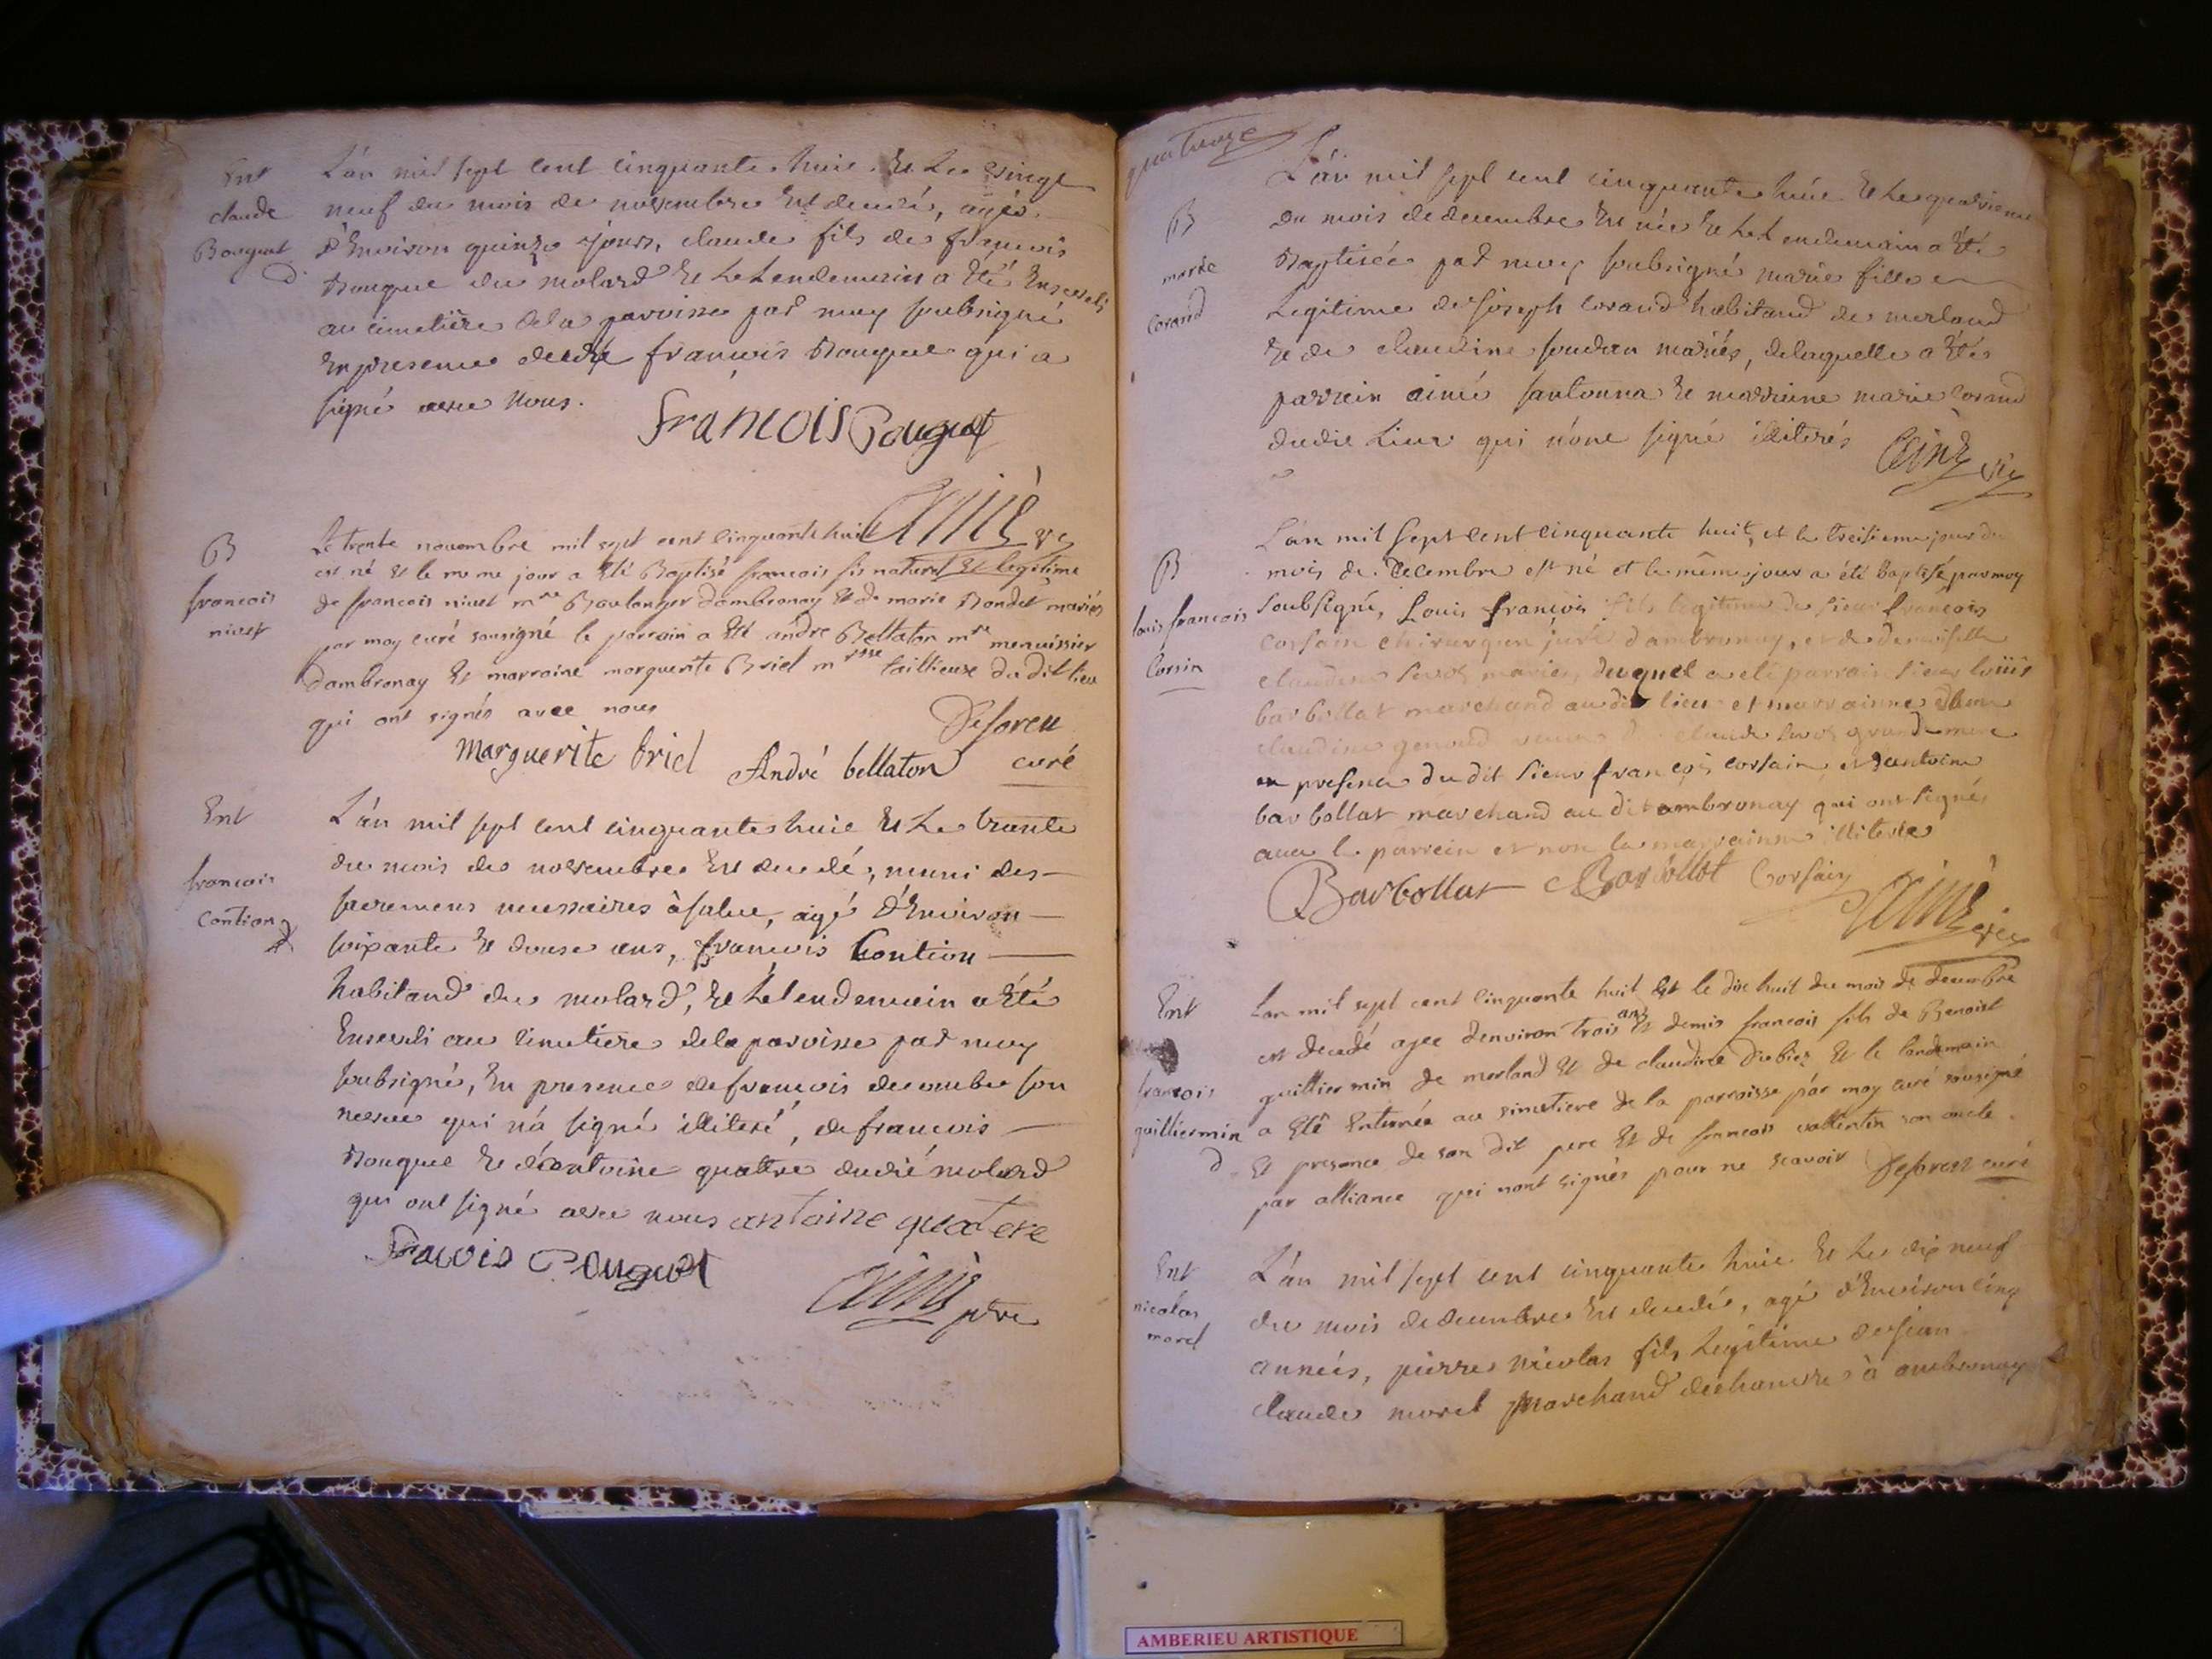 Ent
claude
Bouguet
d
L'an mil sept cent cinquante huit et le vingt
neuf du mois de novembre est decedé, agés
d'Environ quinze jours, claude fils de francois
Bouguet du molard et le Lendemain a été Enseveli
au cimetière de la paroisse par moy soubsigné
En presence dudit francois Bouguet qui a
signé avec nous.
francois Bouguet
Aimé vic
B
francois
nivet
Le trente novembre mil sept cent cinquante huit
est né et le meme jour a été Baptisé francois fis naturel et legitime
de francois nivet mre Boulanger dambronay et de marie Bondet mariés
par moy curé sousigné le parrain a été andre Bellaton mre menuissier
dambronay et marraine marguerite Briel mrsse taillieuse du dit lieu
qui ont signés avec nous
marguerite briel André bellaton curé
Ent
francois
Contion
d
L'an mil sept cent cinquante huit et Le trente
du mois de novembre est decedé, muni des
sacremens necessaires à salut, agé d'Environ
soixante et douse ans, francois Contion
habitand du molard, et Le Lendemain a été
Enseveli au cimetiere de la paroisse par moy
soubsigné, En presence de francois son
neveu qui n'a signé illiteré, de francois
Bouguet et d'antoine quatre dudit molard
qui ont signé avec nous antoine quatere
Fracois Bouguet
Aimé ptre
quatorze
B
marie
Corand
L'an mil sept cent cinquante huit et Le quatrieme
du mois de decembre est née et Le Lendemain a été
Baptisée par moy soubsigné marie fille
Legitime de Joseph Corand habitand de merland
et de claudine mariés, de laquelle a été
parrein aimé santonna et marrienne marie Corand
dudit Lieu qui n'ont signé illiterés
Aimé vic
B
louis francois
Corsin
L'an mil sept cent cinquante huit, et le treisieme jour du
mois de Decembre est né et le même jour a été baptisé par moy
soubsigné, Louis françois fils legitime de sieur françois
corsain chirurgien juré d'ambronay, et de demoiselle
claudine mariés, duquel a eté parrain sieur louis
barbollat marchand au dit lieu et marrainne dame
claudine veuve de claude grande mere
en presence du dit sieur françois corsain et d'antoine
barbollat marchand au dit ambronay qui ont signé
avec le parrein et non la marrainne illiterée
Barbollat Barbollat Corsain
Aimé vic
Ent
francois
guilliermin
d
Lan mil sept cent cinquante huit Et le dix huit du mois de decembre
est decedé agee denviron trois ans et demis francois fils de Benoist
guilliermin de merland et de claudine Et le landemain
a Eté Enterrée au simetiere de la parroisse par moy curé sousigné
Et presence de son dit pere Et de francois vallentin son oncle
par alliance qui nont signés pour ne scavoir curé
Ent
nicolas
morel
L'an mil sept cent cinquante huit et Le dix neuf
du mois de decembre est decedé, agé d'Environ cinq
années, pierre nicolas fils Legitime de jean
claude morel marchand de chanvre à ambronay
AMBERIEU ARTISTIQUE